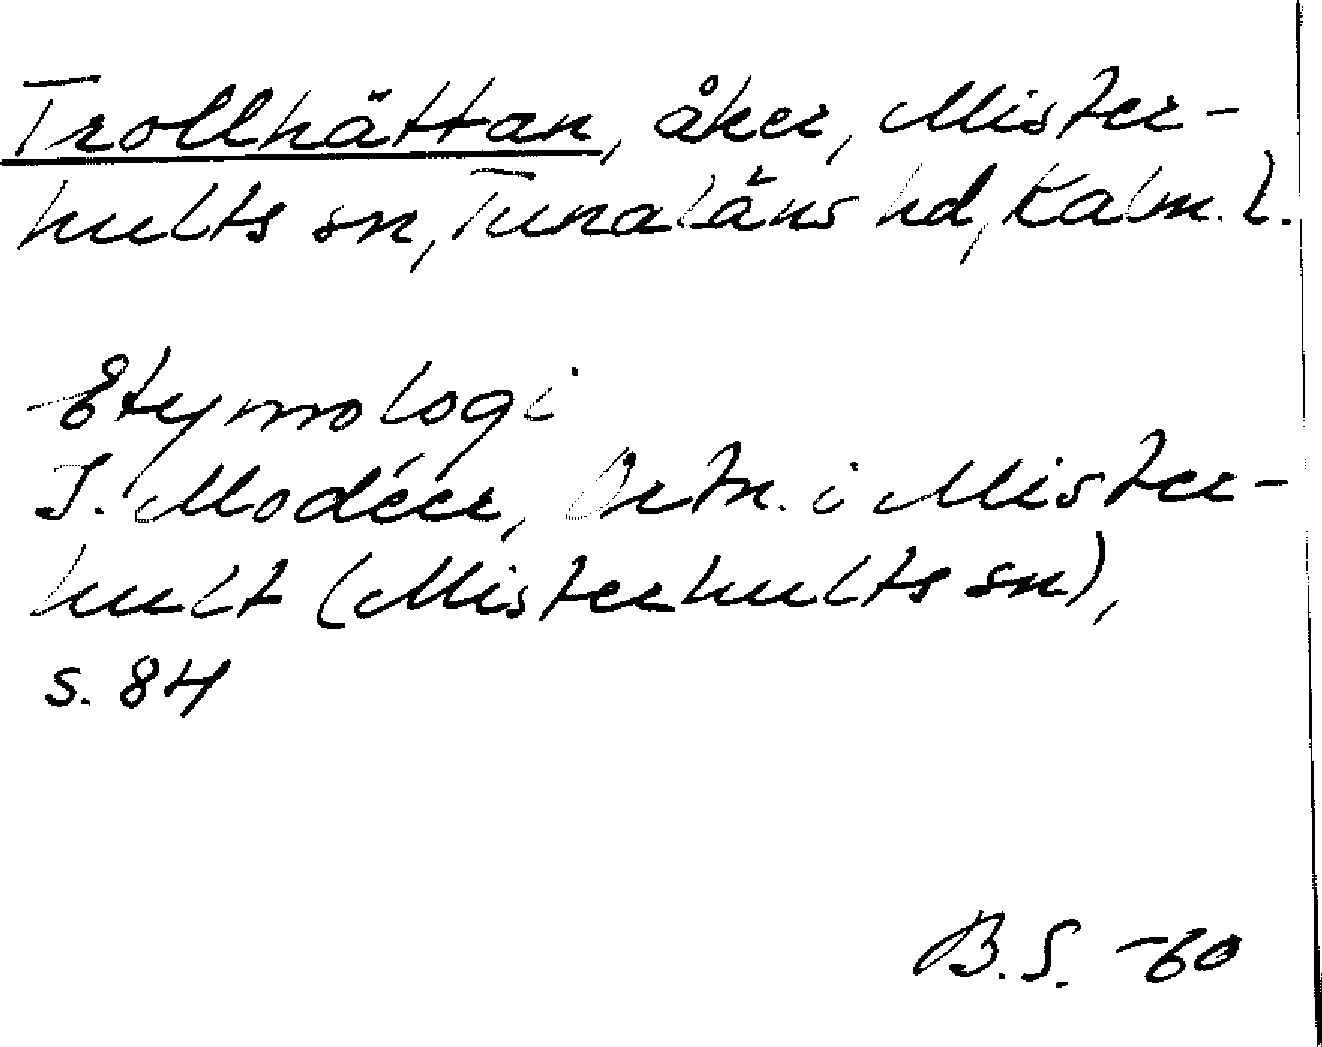 Trollhättan, åker, Mister-
hults sn, Tunaläns hd, Kalm. l.
Etymologi
I. Modéer, Ortn. i Mister-
hult (Misterhults sn),
s. 84
B.S. -60